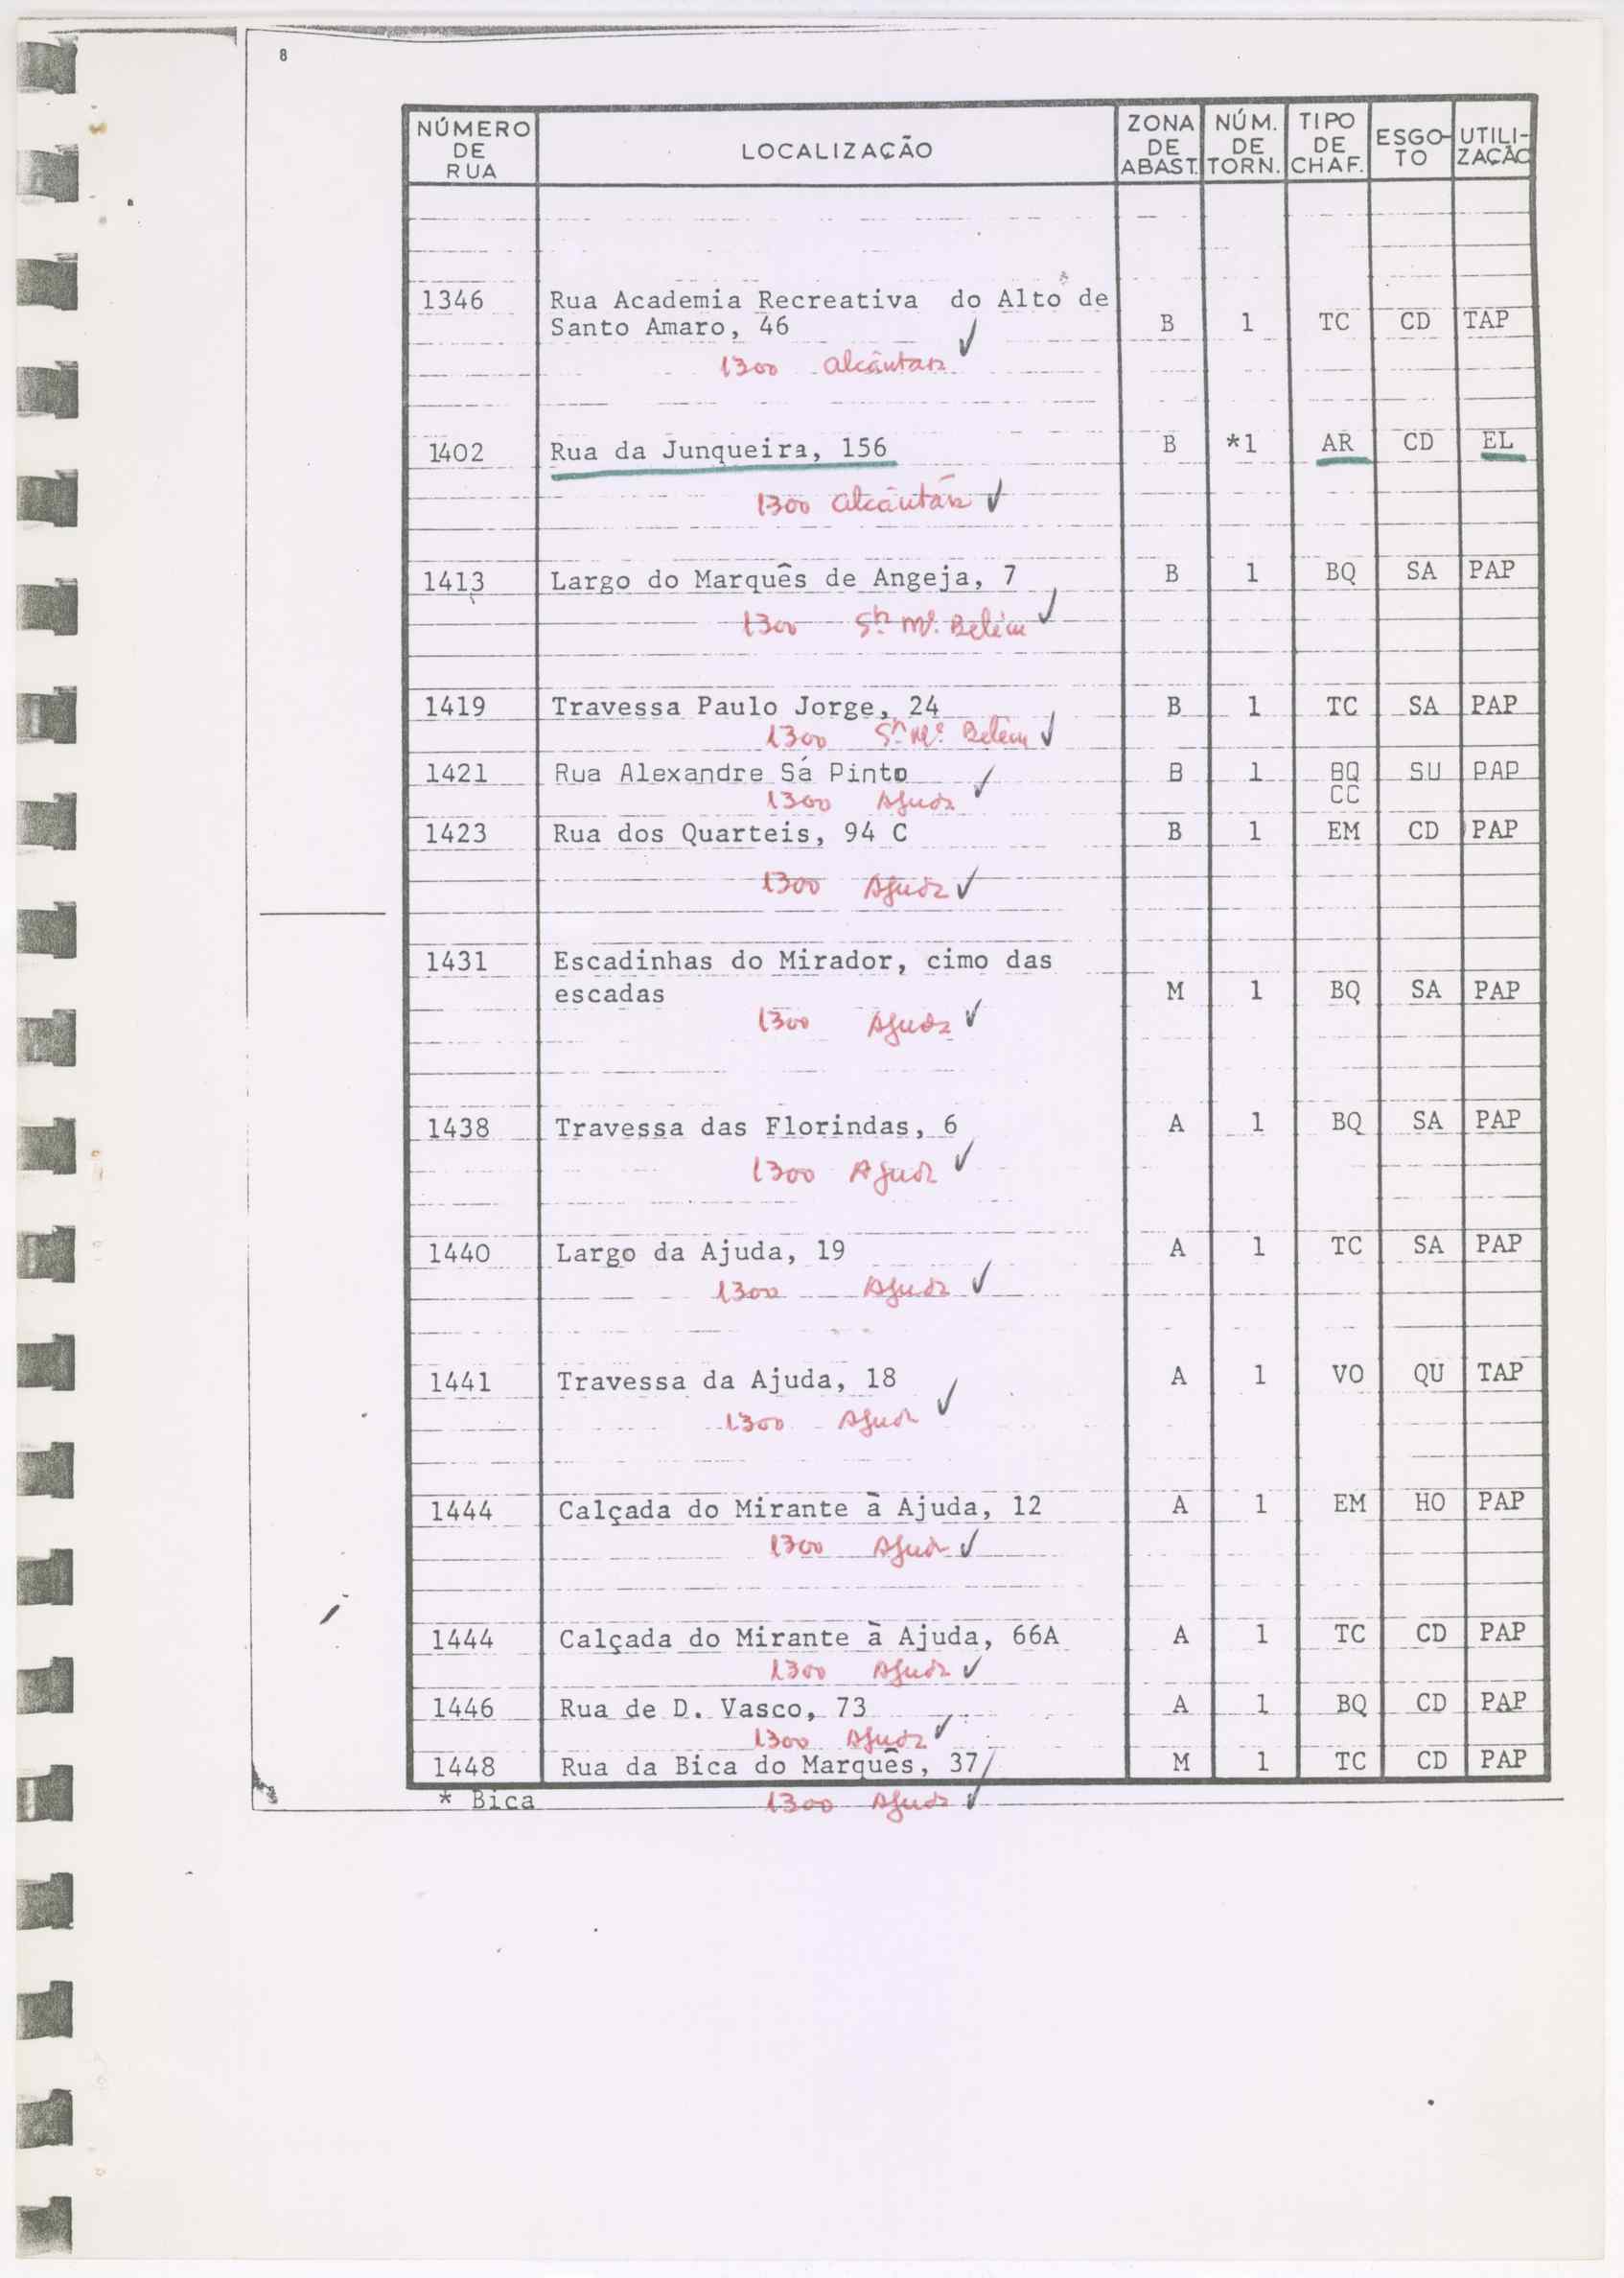 8
NÚMERO DE RUA LOCALIZAÇÃO ZONA DE ABAST. NÚM. DE TORN. TIPO DE CHAF. ESGOTO UTILIZAÇÃO
1346 Rua Academia Recreativa do Alto de
Santo Amaro, 46 B 1 TC CD TAP
1300 Alcântara
1402 Rua da Junqueira, 156 B *1 AR CD EL
1300 Alcântara
1413 Largo do Marquês de Angeja, 7 B 1 BQ SA PAP
1300 Stª Mª. Belém
1419 Travessa Paulo Jorge, 24 B 1 TC SA PAP
1300 Stª Mª. Belém
1421 Rua Alexandre Sá Pinto B 1 BQ SU PAP
CC
1300 Ajuda
1423 Rua dos Quarteis, 94 C B 1 EM CD PAP
1300 Ajuda
1431 Escadinhas do Mirador, cimo das
escadas M 1 BQ SA PAP
1300 Ajuda
1438 Travessa das Florindas, 6 A 1 BQ SA PAP
1300 Ajuda
1440 Largo da Ajuda, 19 A 1 TC SA PAP
1300 Ajuda
1441 Travessa da Ajuda, 18 A 1 VO QU TAP
1300 Ajuda
1444 Calçada do Mirante à Ajuda, 12 A 1 EM HO PAP
1300 Ajuda
1444 Calçada do Mirante à Ajuda, 66A A 1 TC CD PAP
1300 Ajuda
1446 Rua de D. Vasco, 73 A 1 BQ CD PAP
1300 Ajuda
1448 Rua da Bica do Marquês, 37 M 1 TC CD PAP
* Bica 1300 Ajuda